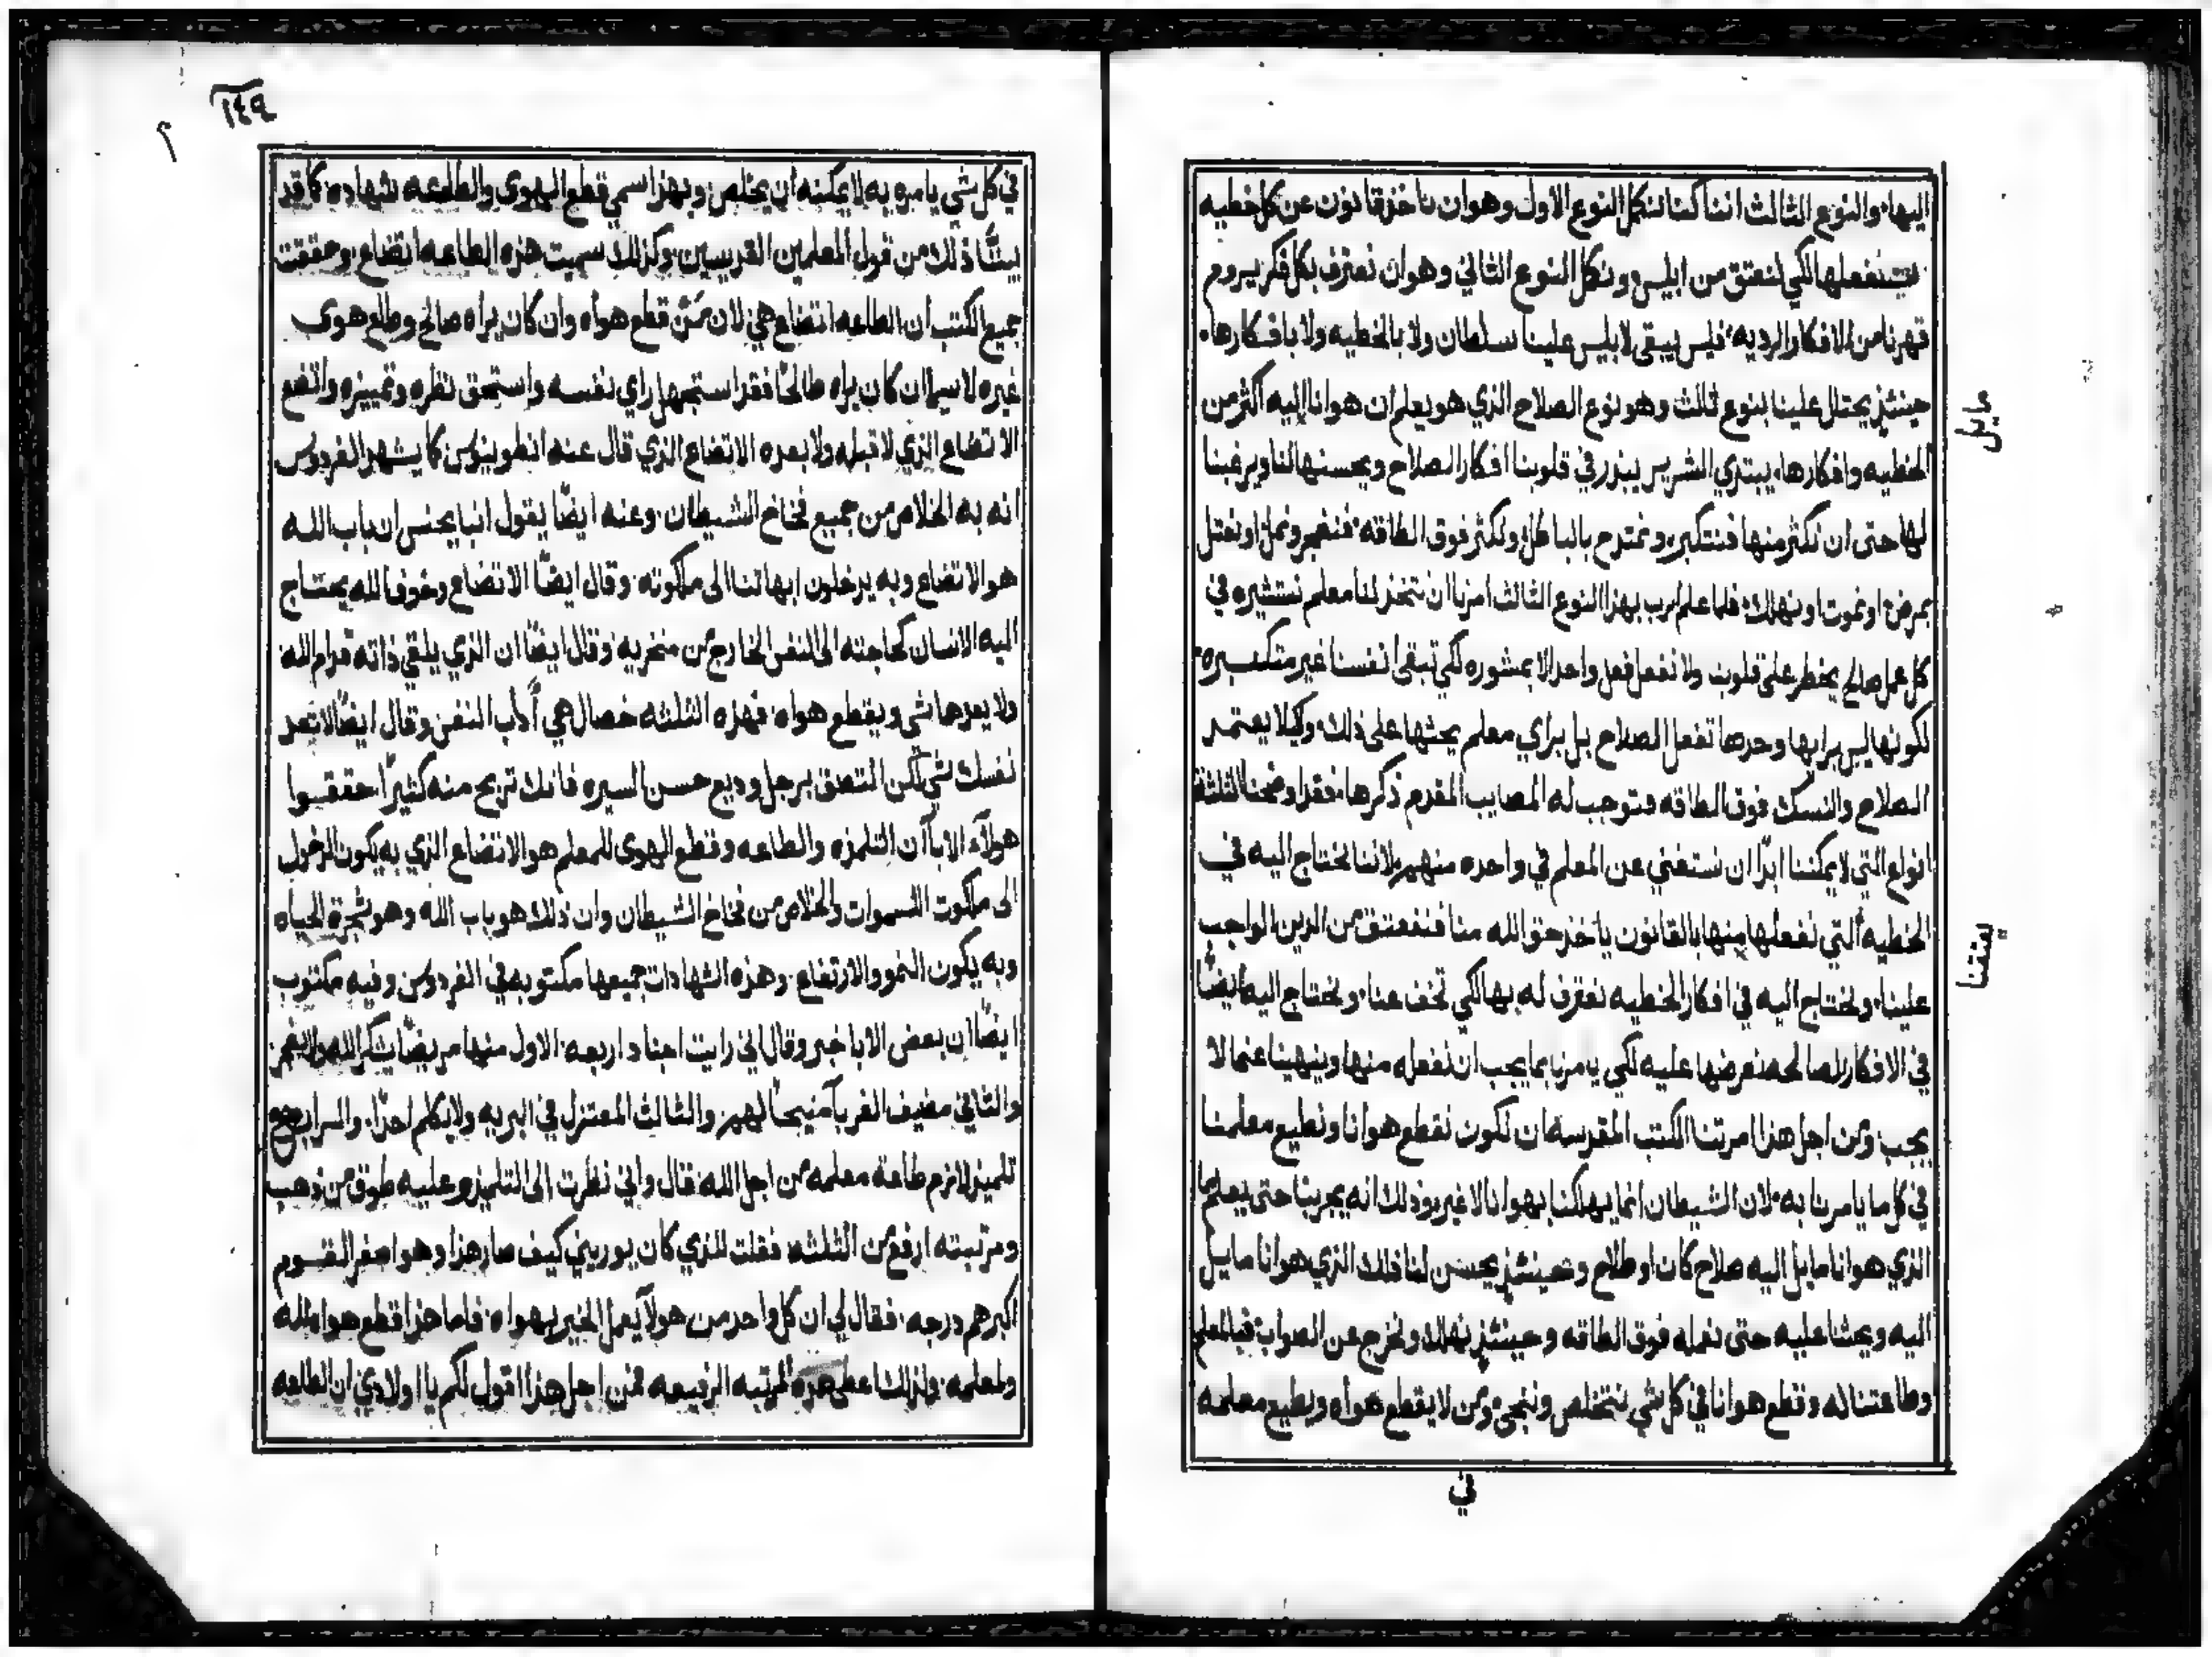 اليها. والنوع الثالث اننا كنا لنكمل النوع الاول وهو ان ناخذ قانون عن كل خطيه
نفعلها لكي نعتق من ابليس ونكمل النوع الثاني وهو ان نعترف بكل فكر يروم
قهرنا من الافكار الرديه. فليس يبقى لابليس علينا سلطان ولا بالخطيه ولا بافكارها.
حينئذ يحتال علينا بنوع ثالث وهو نوع الصلاح الذي هو يعلم ان هوانا اليه اكثر من
الخطيه وافكارها. يبتدي الشرير يبذر في قلوبنا افكار الصلاح ويحسنها لنا ويرغبنا
لها حتى ان نكثر منها فنتكبر ونمتدح بالباطل ونكثر فوق الطاقه. فنضجر ونمل او نعتل
بمرض او نموت او نهلك. فلما علم الرب بهذا النوع الثالث امرنا ان نتخذ لنا معلم نستشيره في
كل عمل صالح يخطر على قلوبنا ولا نفعل فعل واحد الا بمشوره لكي تبقى انفسنا غير متكبره
لكونها ليس برايها وحدها تفعل الصلاح بل براي معلم يحثها على ذلك. وكيلا يعتمد
الصلاح والنسك فوق الطاقه فتوجب له المصايب المقدم ذكرها. فقد اوضحنا الثلثة
انواع التي لا يمكننا ابدًا ان نستغني عن المعلم في واحده منهم. لاننا نحتاج اليه في
الخطيه التي نفعلها منها بالقانون ياخذ حق الله منا فنعتق من الدين الواجب
علينا. ونحتاج اليه في افكار الخطيه نعترف له بها لكي تخف عنا. ونحتاج اليه ايضًا
في الافكار الصالحه نعرضها عليه لكي يامرنا بما يجب ان نفعله منها وينهينا عنما لا
يجب. ومن اجل هذا امرتنا الكتب المقدسه ان نكون نقطع هوانا ونطيع معلمنا
في كل ما يامرنا به. لان الشيطان انما يهلكنا بهوانا لا غير. وذلك انه يجربنا حتى يعلم ما
الذي هوانا مايل اليه صلاح كان او طلاح وحينئذ يحسن لنا ذلك الذي هوانا مايل
اليه ويحثنا عليه حتى نعمله فوق الطاقه وحينئذ نهلك ونخرج عن الصواب. فبالمعلم
وطاعتنا له وقطع هوانا في كل شي نتخلص وننجى. ومن لا يقطع هواه ويطيع معلمه
في
مايل
يعتقنا
١٤٩
في كل شي يامره به لا يمكنه ان يخلص. وبهذا سمي قطع الهوى والطاعه شهاده. كما قد
بينَّا ذلك من قول المعلمين القديسين. وكذلك سميت هذه الطاعه اتضاع. وحققت
جميع الكتب ان الطاعه اتضاع هي. لان من قطع هواه وان كان يراه صالح وطلع هوى
غيره لا سيما ان كان يراه طالحًا فقد استجهل راي نفسه واستحق نظره وتمييزه واتضع
الاتضاع الذي لا قبله ولا بعده الاتضاع الذي قال عنه انطونيوس كما يشهد الفردوس
انه به الخلاص من جميع فخاخ الشيطان. وعنه ايضًا يقول انبا يحنس ان باب الله
هو الاتضاع وبه يدخلون ابهاتنا الى ملكوته. وقال ايضًا الاتضاع وخوف الله يحتاج
اليه الانسان كحاجته الى النفس الخارج من منخريه. وقال ايضًا ان الذي يلقي ذاته قدام الله
ولا يعدها شي ويقطع هواه. فهذه الثلثه خصال هي أداب النفس وقال ايضًا لا تعد
نفسك شي لكن التصق برجل وديع حسن السيره فانك تربح منه كثيرًا. حققوا
هولاء الابا ان التلمذه والطاعه وقطع الهوى للمعلم هو الاتضاع الذي به يكون الدخول
الى ملكوت السموات والخلاص من فخاخ الشيطان وان ذلك هو باب الله وهو شجرة الحياه
وبه يكون النمو والارتفاع. وهذه الشهادات جميعها مكتوبه في الفردوس وفيه مكتوب
ايضًا ان بعض الابا خبر وقال اني رايت اجناد اربعه. الاول منها مريضًا يشكر الله ولا يضجر
والثاني مضيف الغربا منيحًا لهم. والثالث المعتزل في البريه ولا يكلم احدًا. والرابع
تلميذ لازم طاعة معلمه من اجل الله. قال واني نظرت الى التلميذ وعليه طوق من ذهب
ومرتبته ارفع من الثلثه. فقلت للذي كان يوريني كيف صار هذا وهو اصغر القوم
اكبرهم درجه. فقال لي ان كل واحد من هولآ يعمل الخير بهواه. فاما هذا قطع هواه لله
ولمعلمه. ولذلك اعطى هذه المرتبه الرفيعه. فمن اجل هذا اقول لكم يا اولادي ان الطاعه